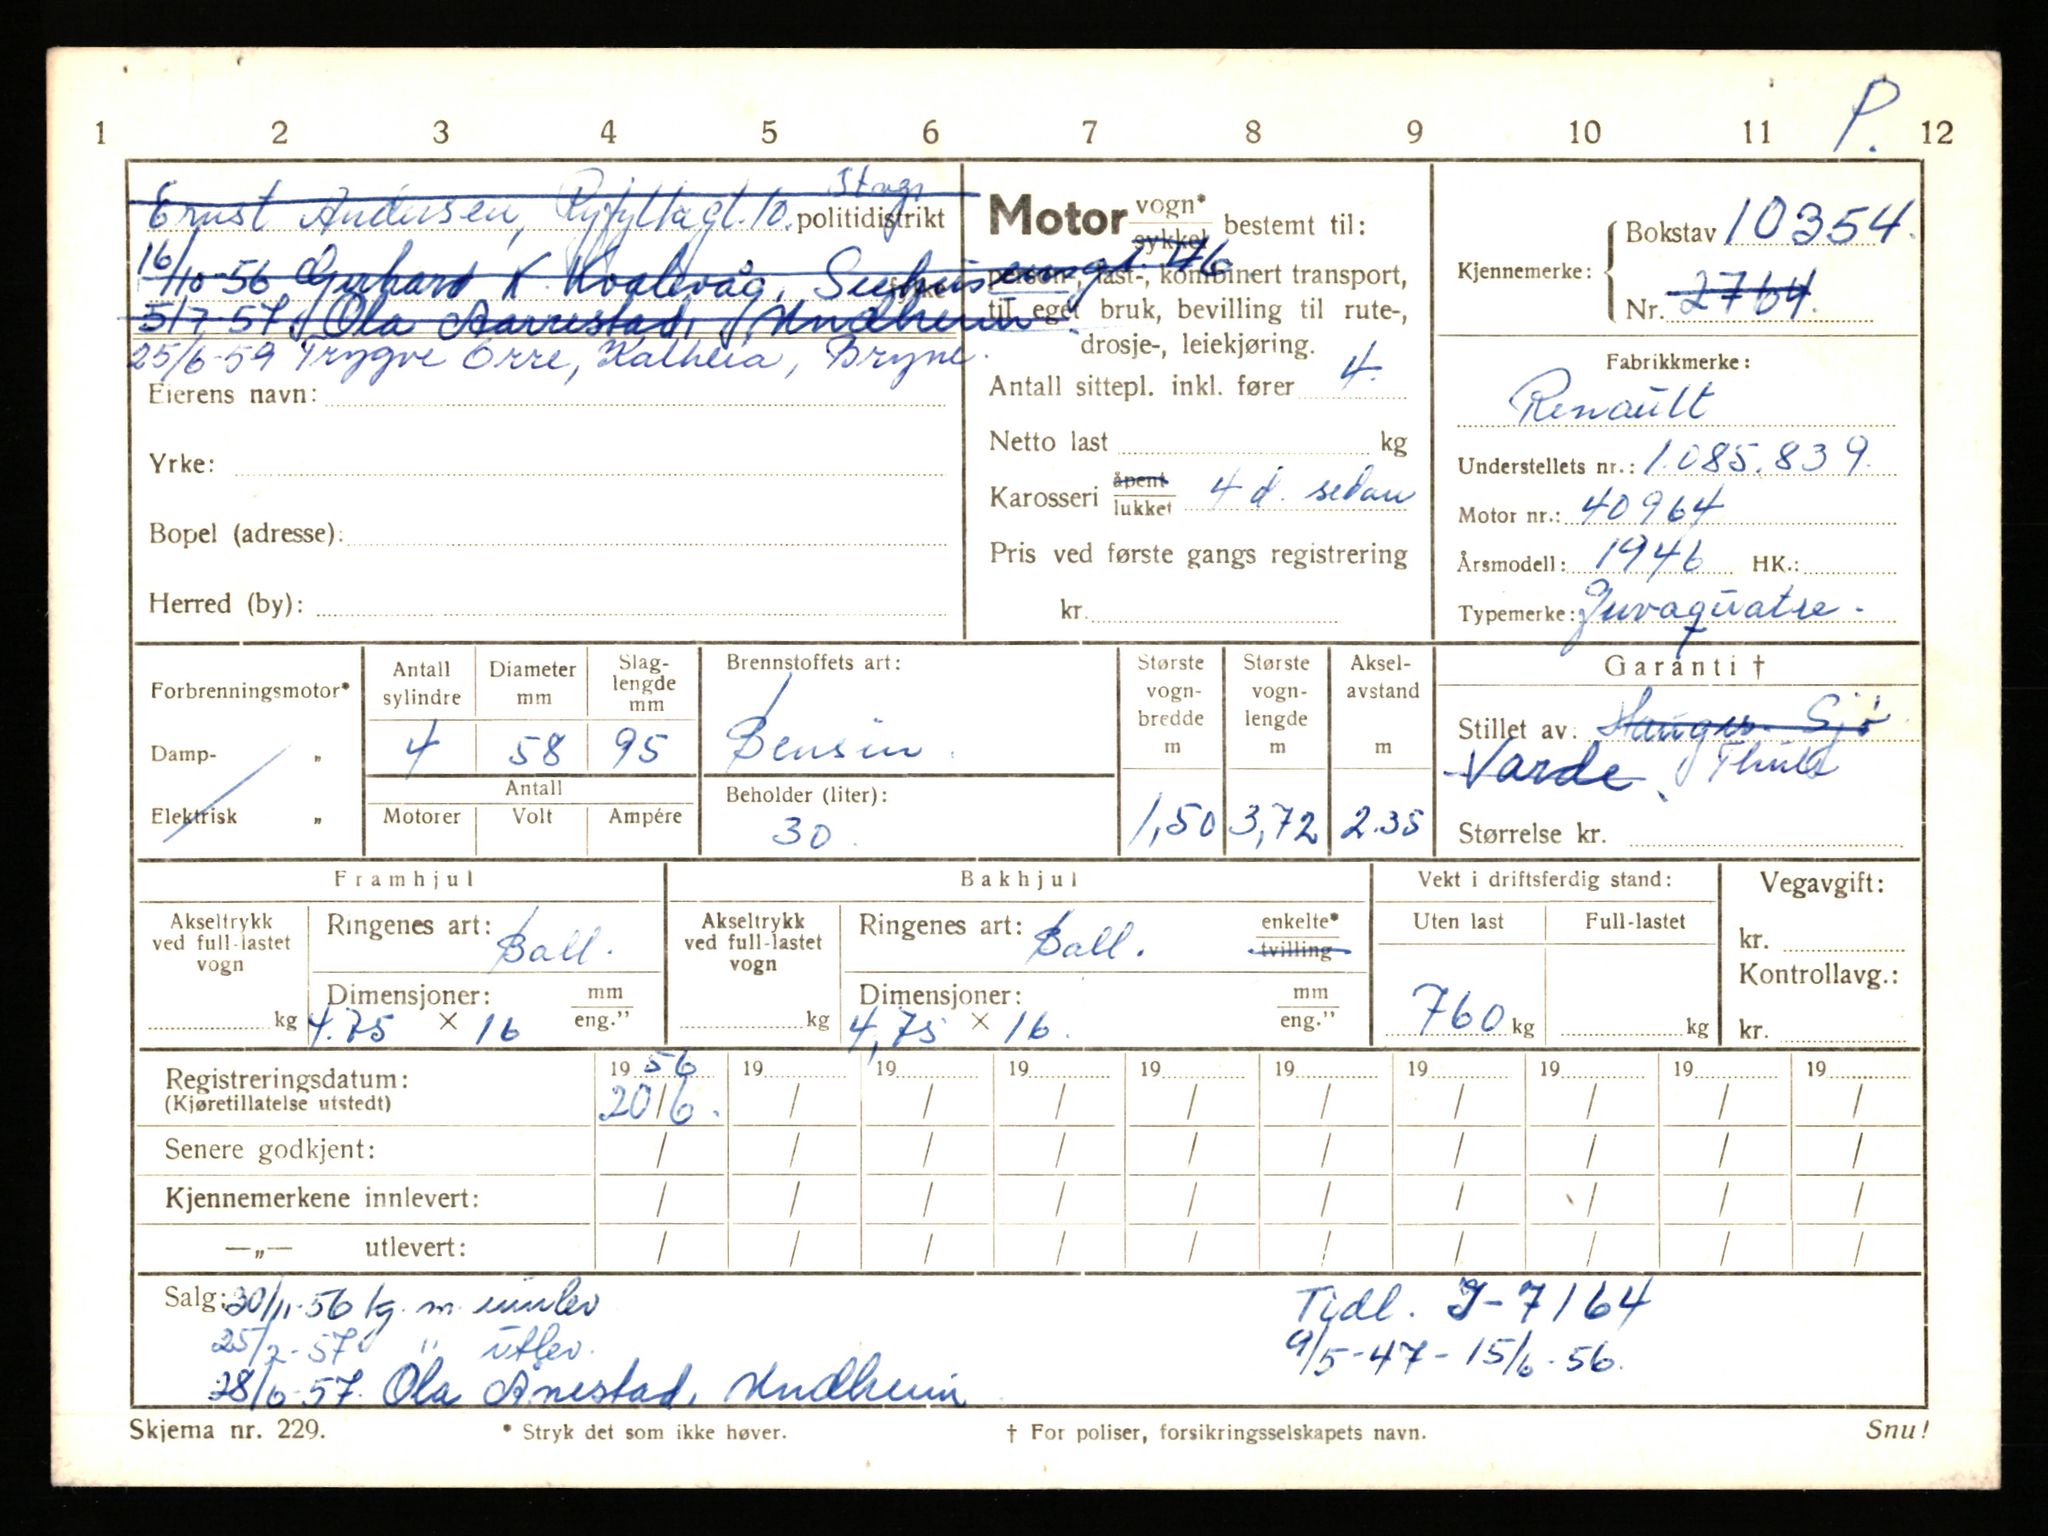 P.
1 2 3 4 5 6 7 8 9 10 11 12
Stvgr
Ernst Andersen, Ryfylkegt. 10. politidistrikt
16/10-56 Gerhard K. Kvalevåg, gt. 46.
fylke
5/7-57. Ola Aarrestad, Undheim
25/6-59 Trygve Orre, Kalheia, Bryne.
Eierens navn:
Yrke:
Bopel (adresse):
Herred (by):
Motor vogn* sykkel bestemt til:
person-, last-, kombinert transport,
til eget bruk, bevilling til rute-,
drosje-, leiekjøring.
Antall sittepl. inkl. fører 4.
Netto last kg
Karosseri åpent lukket 4 d. sedan
Pris ved første gangs registrering
kr.
Kjennemerke: Bokstav 10354.
Nr. 2764.
Fabrikkmerke:
Renault
Understellets nr.: 1.085.839.
Motor nr.: 40964
Årsmodell: 1946 HK.:
Typemerke: Juvaquatre.
Forbrenningsmotor*
Damp- „
Elektrisk „
Antall sylindre Diameter mm Slag-lengde mm
4 58 95
Antall
Motorer Volt Ampére
Brennstoffets art:
Bensin.
Beholder (liter):
30.
Største vogn-bredde m Største vogn-lengde m Aksel-avstand m
1,50 3,72 2.35
Garanti †
Stillet av: Hauger Sjø
Varde, Thule
Størrelse kr.
Framhjul
Akseltrykk ved full-lastet vogn
kg
Ringenes art: Ball.
Dimensjoner: mm eng."
4.75 × 16
Bakhjul
Akseltrykk ved full-lastet vogn
kg
Ringenes art: Ball. enkelte* tvilling
Dimensjoner: mm eng."
4,75 × 16.
Vekt i driftsferdig stand:
Uten last Full-lastet
760 kg kg
Vegavgift:
kr.
Kontrollavg.:
kr.
Registreringsdatum: 19 56 19 19 19 19 19 19 19 19 19
(Kjøretillatelse utstedt) 20/6. / / / / / / / / /
Senere godkjent: / / / / / / / / / /
Kjennemerkene innlevert: / / / / / / / / / /
—„— utlevert: / / / / / / / / / /
Salg: 30/11-56 kj. m. innlev
25/2-57 " utlev.
28/6-57. Ola Årrestad, Undheim
Tidl. J-7164
9/5-47-15/6-56.
Skjema nr. 229.
* Stryk det som ikke høver.
† For poliser, forsikringsselskapets navn.
Snu!